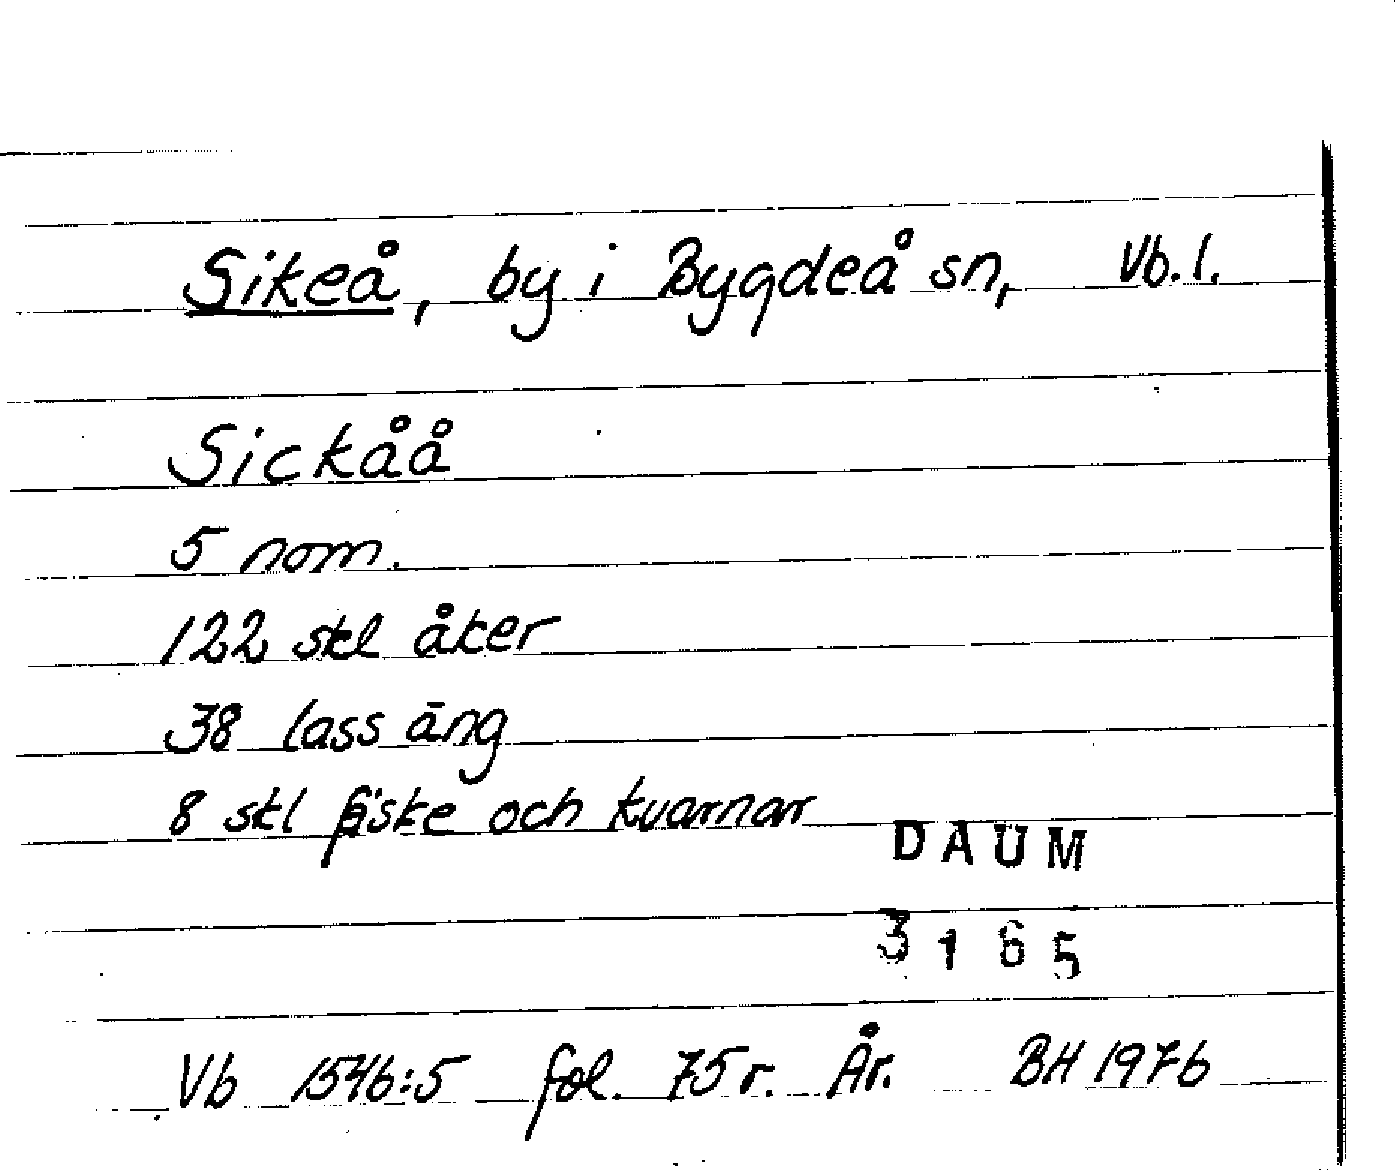 Sikeå, by i Bygdeå sn, Vb. l.
Sickåå
5 nom.
122 skl åker
38 lass äng
8 skl fiske och kvarnar
DAUM
3165
Vb 1546:5 fol. 75 r. År. BH 1976